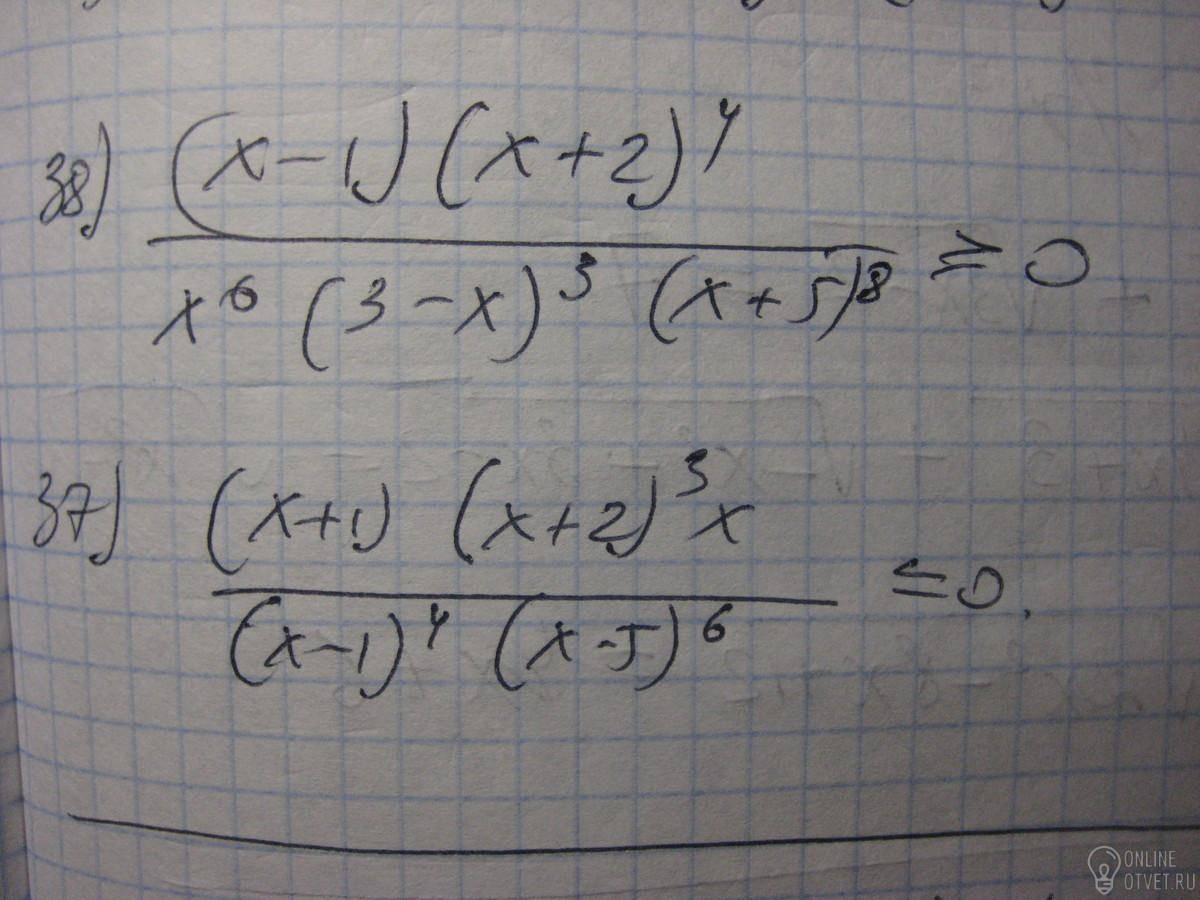 38) (x-1)(x+2)^4
x^6 (3-x)^3 (x+5)^8 ≥ 0
37) (x+1) (x+2)^3 x
(x-1)^4 (x-5)^6 ≤ 0.
ONLINE
OTVET.RU